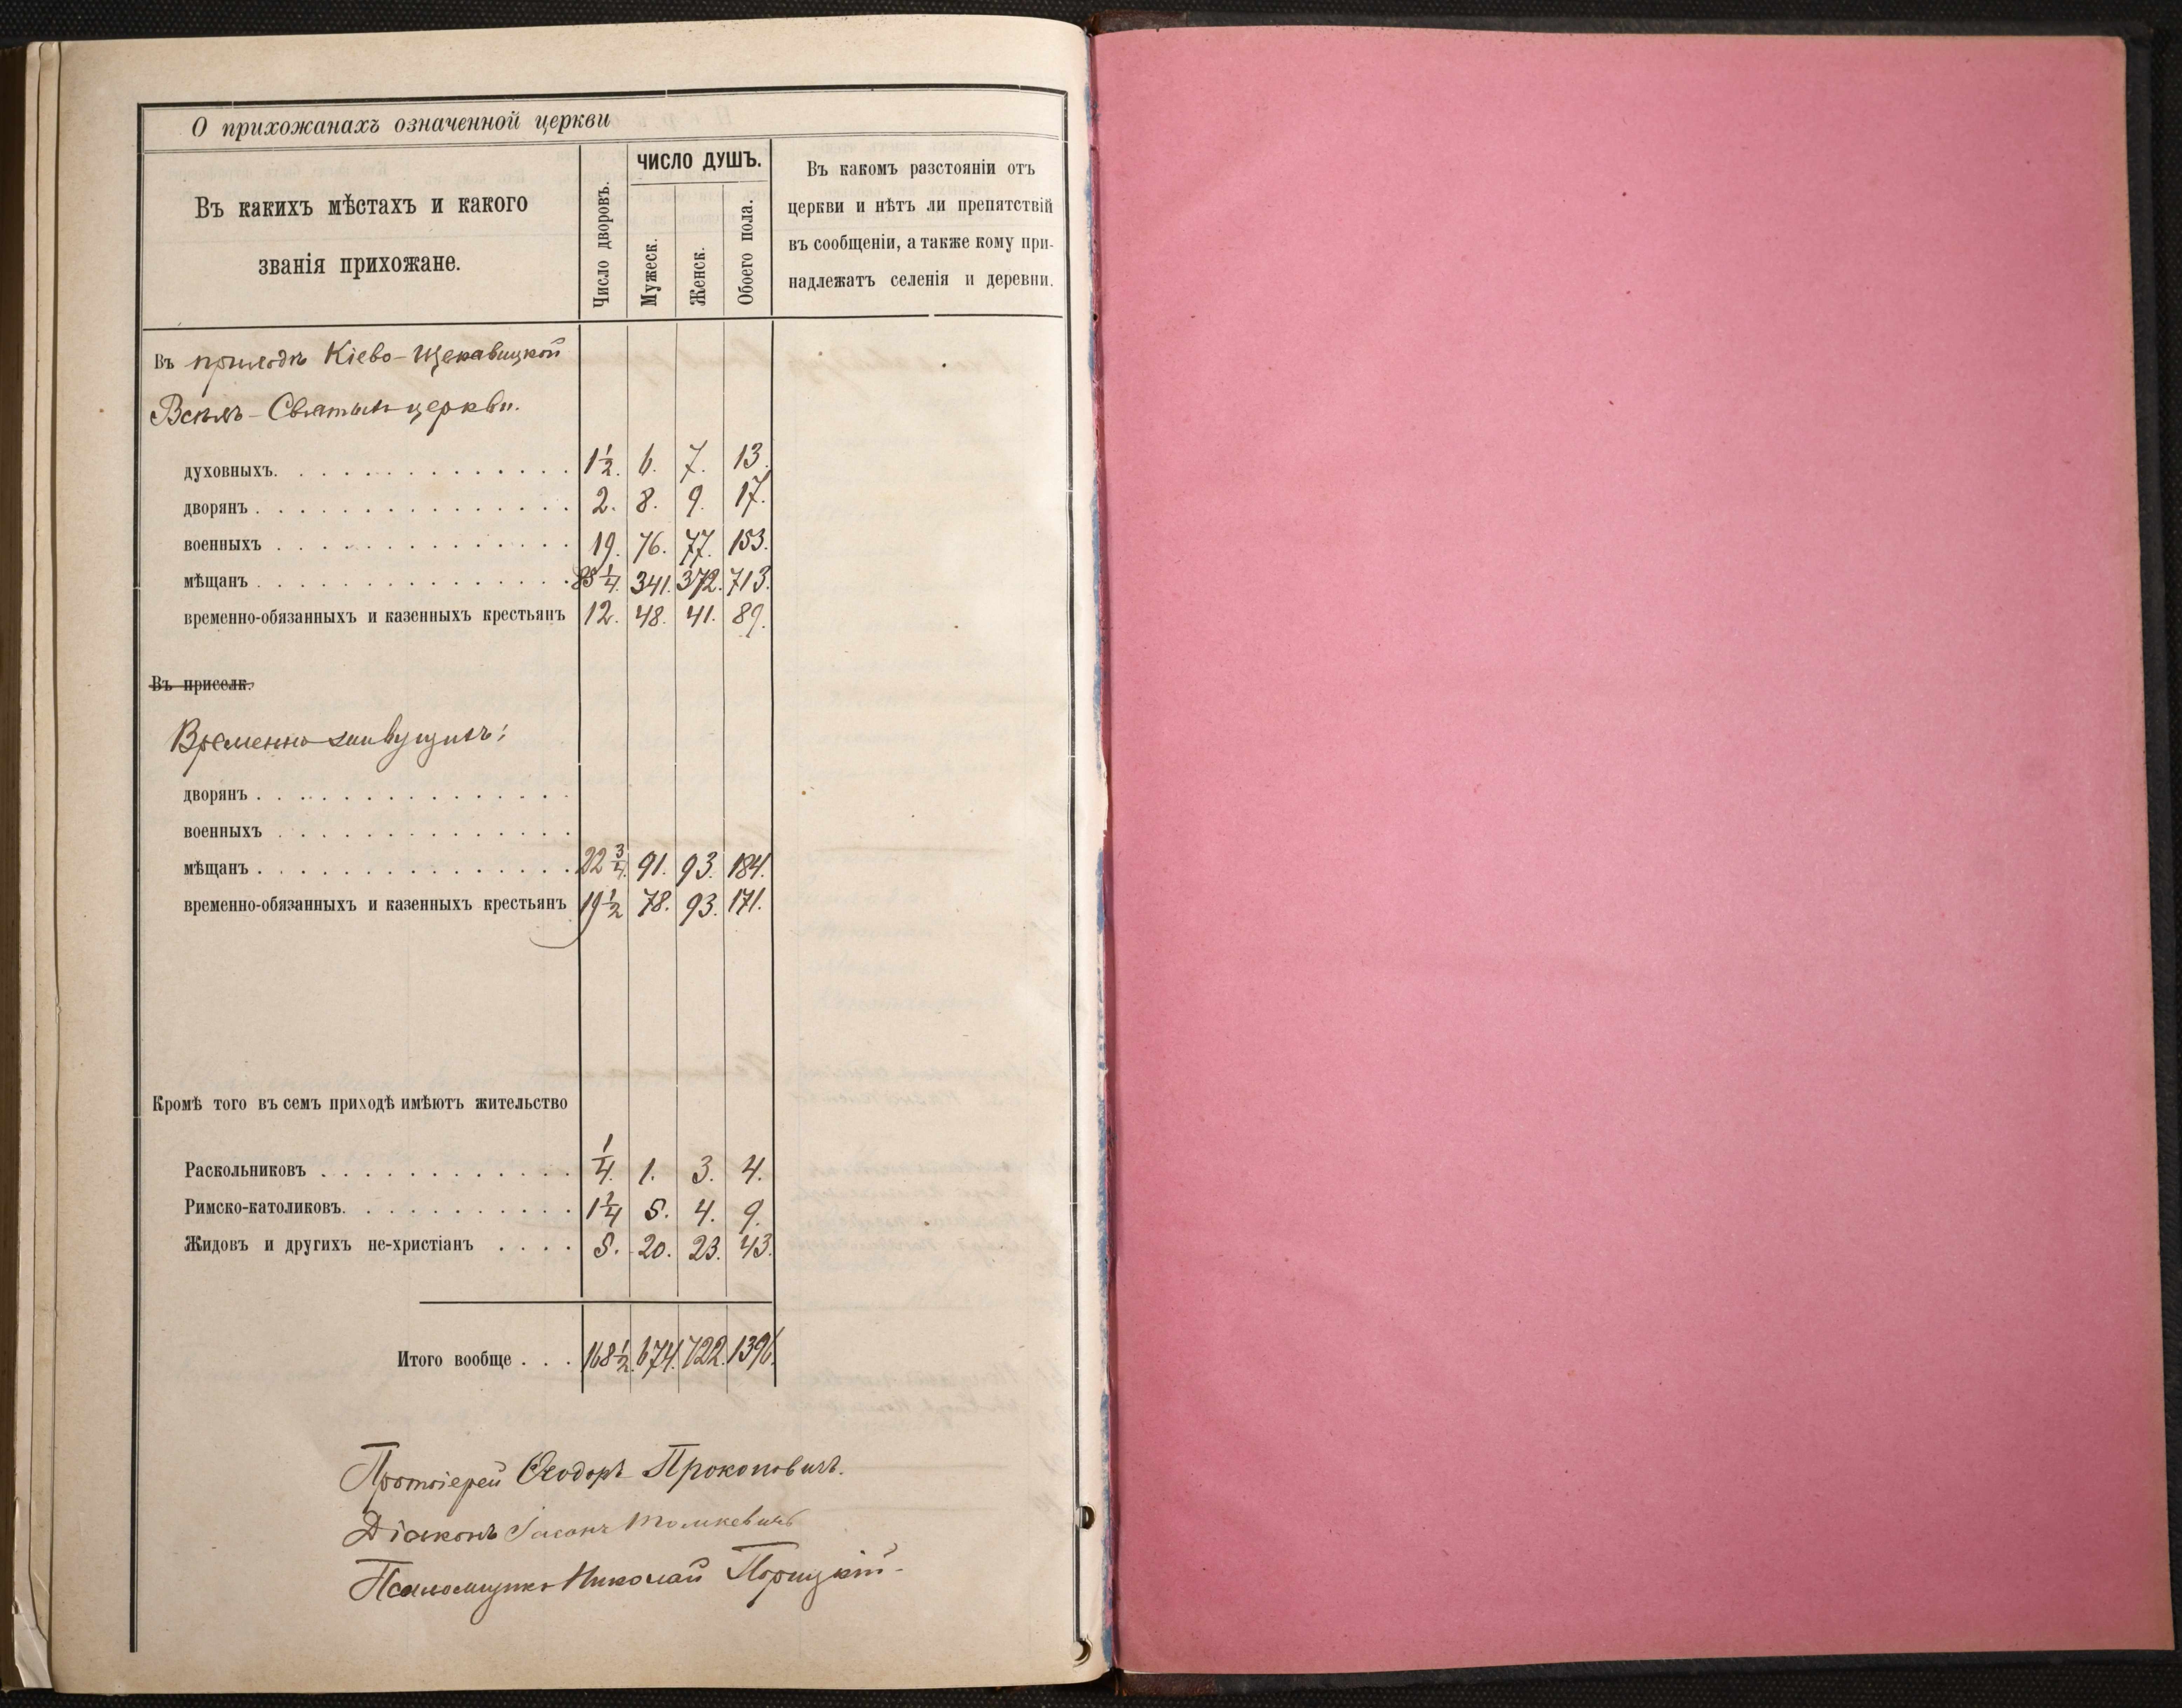 О прихожанахъ означенной церкви
Въ какихъ мѣстахъ и какого
званія прихожане.
Число дворовъ.
ЧИСЛО ДУШЪ.
Мужеск.
Женск.
Обоего пола.
Въ какомъ разстояніи отъ
церкви и нѣтъ ли препятствій
въ сообщеніи, а также кому при-
надлежатъ селенія и деревни.
Въ приходѣ Кіево-Щекавицкой
Всѣхъ-Святыхъ церкви.
духовныхъ. 1 1/2. 6. 7. 13.
дворянъ 2. 8. 9. 17.
военныхъ 19. 76. 77. 153.
мѣщанъ 85 1/4. 341. 372. 713.
временно-обязанныхъ и казенныхъ крестьянъ 12. 48. 41. 89.
Въ приселк.
Временно-живущихъ:
дворянъ
военныхъ
мѣщанъ 22 3/4. 91. 93. 184.
временно-обязанныхъ и казенныхъ крестьянъ 19 1/2 78. 93. 171.
Кромѣ того въ семъ приходѣ имѣютъ жительство
Раскольниковъ 1/4. 1. 3. 4.
Римско-католиковъ. 1 1/4 5. 4. 9.
Жидовъ и другихъ не-христіанъ 5. 20. 23. 43.
Итого вообще 168 1/2. 674. 722. 1396.
Протоіерей Ѳеодоръ Прокоповичъ.
Діаконъ Іасонъ Толкевичъ
Псаломщикъ Николай Порицкій